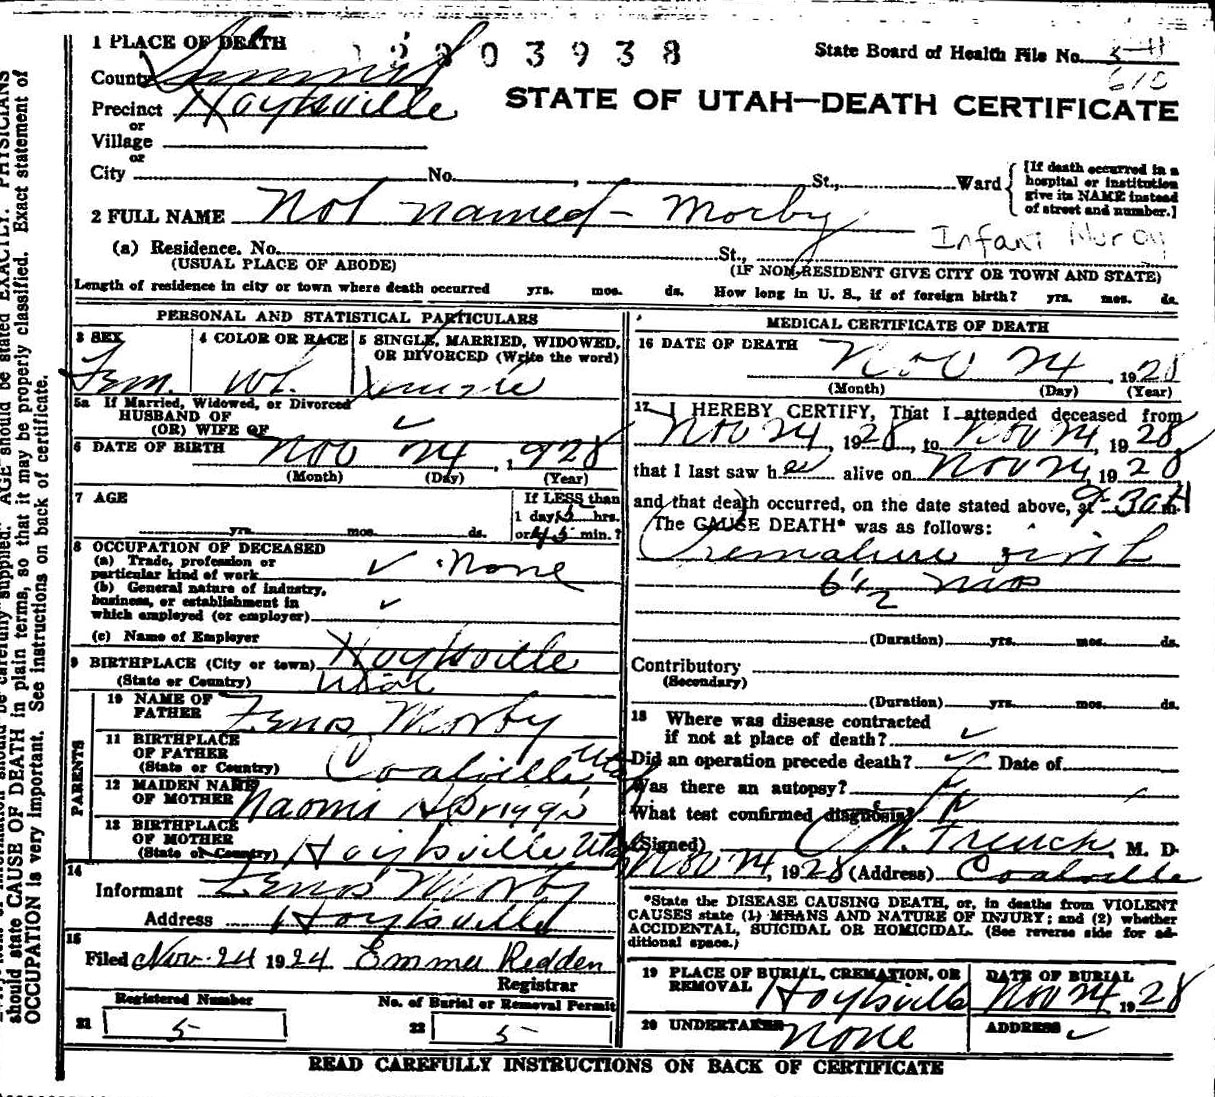 1 PLACE OF DEATH
2803938
State Board of Health File No.
County Summit
Precinct Hoytsville
STATE OF UTAH—DEATH CERTIFICATE
or
Village
or
City No. , St., Ward
[If death occurred in a
hospital or institution
give its NAME instead
of street and number.]
2 FULL NAME Not named - Morby
Infant
(a) Residence. No. St.,
(USUAL PLACE OF ABODE) (IF NON-RESIDENT GIVE CITY OR TOWN AND STATE)
Length of residence in city or town where death occurred yrs. mos. ds. How long in U. S., if of foreign birth? yrs. mos. ds.
PERSONAL AND STATISTICAL PARTICULARS
3 SEX
Fem.
4 COLOR OR RACE
Wh.
5 SINGLE, MARRIED, WIDOWED,
OR DIVORCED (Write the word)
Single
5a If Married, Widowed, or Divorced
HUSBAND OF
(OR) WIFE OF
6 DATE OF BIRTH Nov 24, 1928
(Month) (Day) (Year)
7 AGE
yrs. mos. ds.
If LESS than
1 day, hrs.
or 45 min.?
8 OCCUPATION OF DECEASED
(a) Trade, profession or
particular kind of work None
(b) General nature of industry,
business, or establishment in
which employed (or employer)
(c) Name of Employer
9 BIRTHPLACE (City or town) Hoytsville
(State or Country) Utah
PARENTS
10 NAME OF
FATHER Zenos Morby
11 BIRTHPLACE
OF FATHER
(State or Country) Coalville, Utah
12 MAIDEN NAME
OF MOTHER Naomi Spriggs
13 BIRTHPLACE
OF MOTHER
(State or Country) Hoytsville Utah
14
Informant Zenos Morby
Address Hoytsville
15
Filed Nov. 24 1924 Emma Redden
Registrar
Registered Number
21 5
No. of Burial or Removal Permit
22 5
MEDICAL CERTIFICATE OF DEATH
16 DATE OF DEATH
Nov 24, 1928
(Month) (Day) (Year)
17 I HEREBY CERTIFY, That I attended deceased from
Nov 24, 1928, to Nov 24, 1928
that I last saw her alive on Nov 24, 1928
and that death occurred, on the date stated above, at 9-30 A m.
The CAUSE DEATH* was as follows:
Premature Birth
6½ mos
(Duration) yrs. mos. ds.
Contributory
(Secondary)
(Duration) yrs. mos. ds.
18 Where was disease contracted
if not at place of death?
Did an operation precede death? Date of
Was there an autopsy?
What test confirmed diagnosis?
(Signed) French, M. D.
Nov 24, 1928 (Address) Coalville
*State the DISEASE CAUSING DEATH, or, in deaths from VIOLENT
CAUSES state (1) MEANS AND NATURE OF INJURY; and (2) whether
ACCIDENTAL, SUICIDAL OR HOMICIDAL. (See reverse side for ad-
ditional space.)
19 PLACE OF BURIAL, CREMATION, OR
REMOVAL Hoytsville
DATE OF BURIAL
Nov 24 1928
20 UNDERTAKER None
ADDRESS
READ CAREFULLY INSTRUCTIONS ON BACK OF CERTIFICATE
should state CAUSE OF DEATH in plain terms, so that it may be properly classified. Exact statement of
OCCUPATION is very important. See instructions on back of certificate.